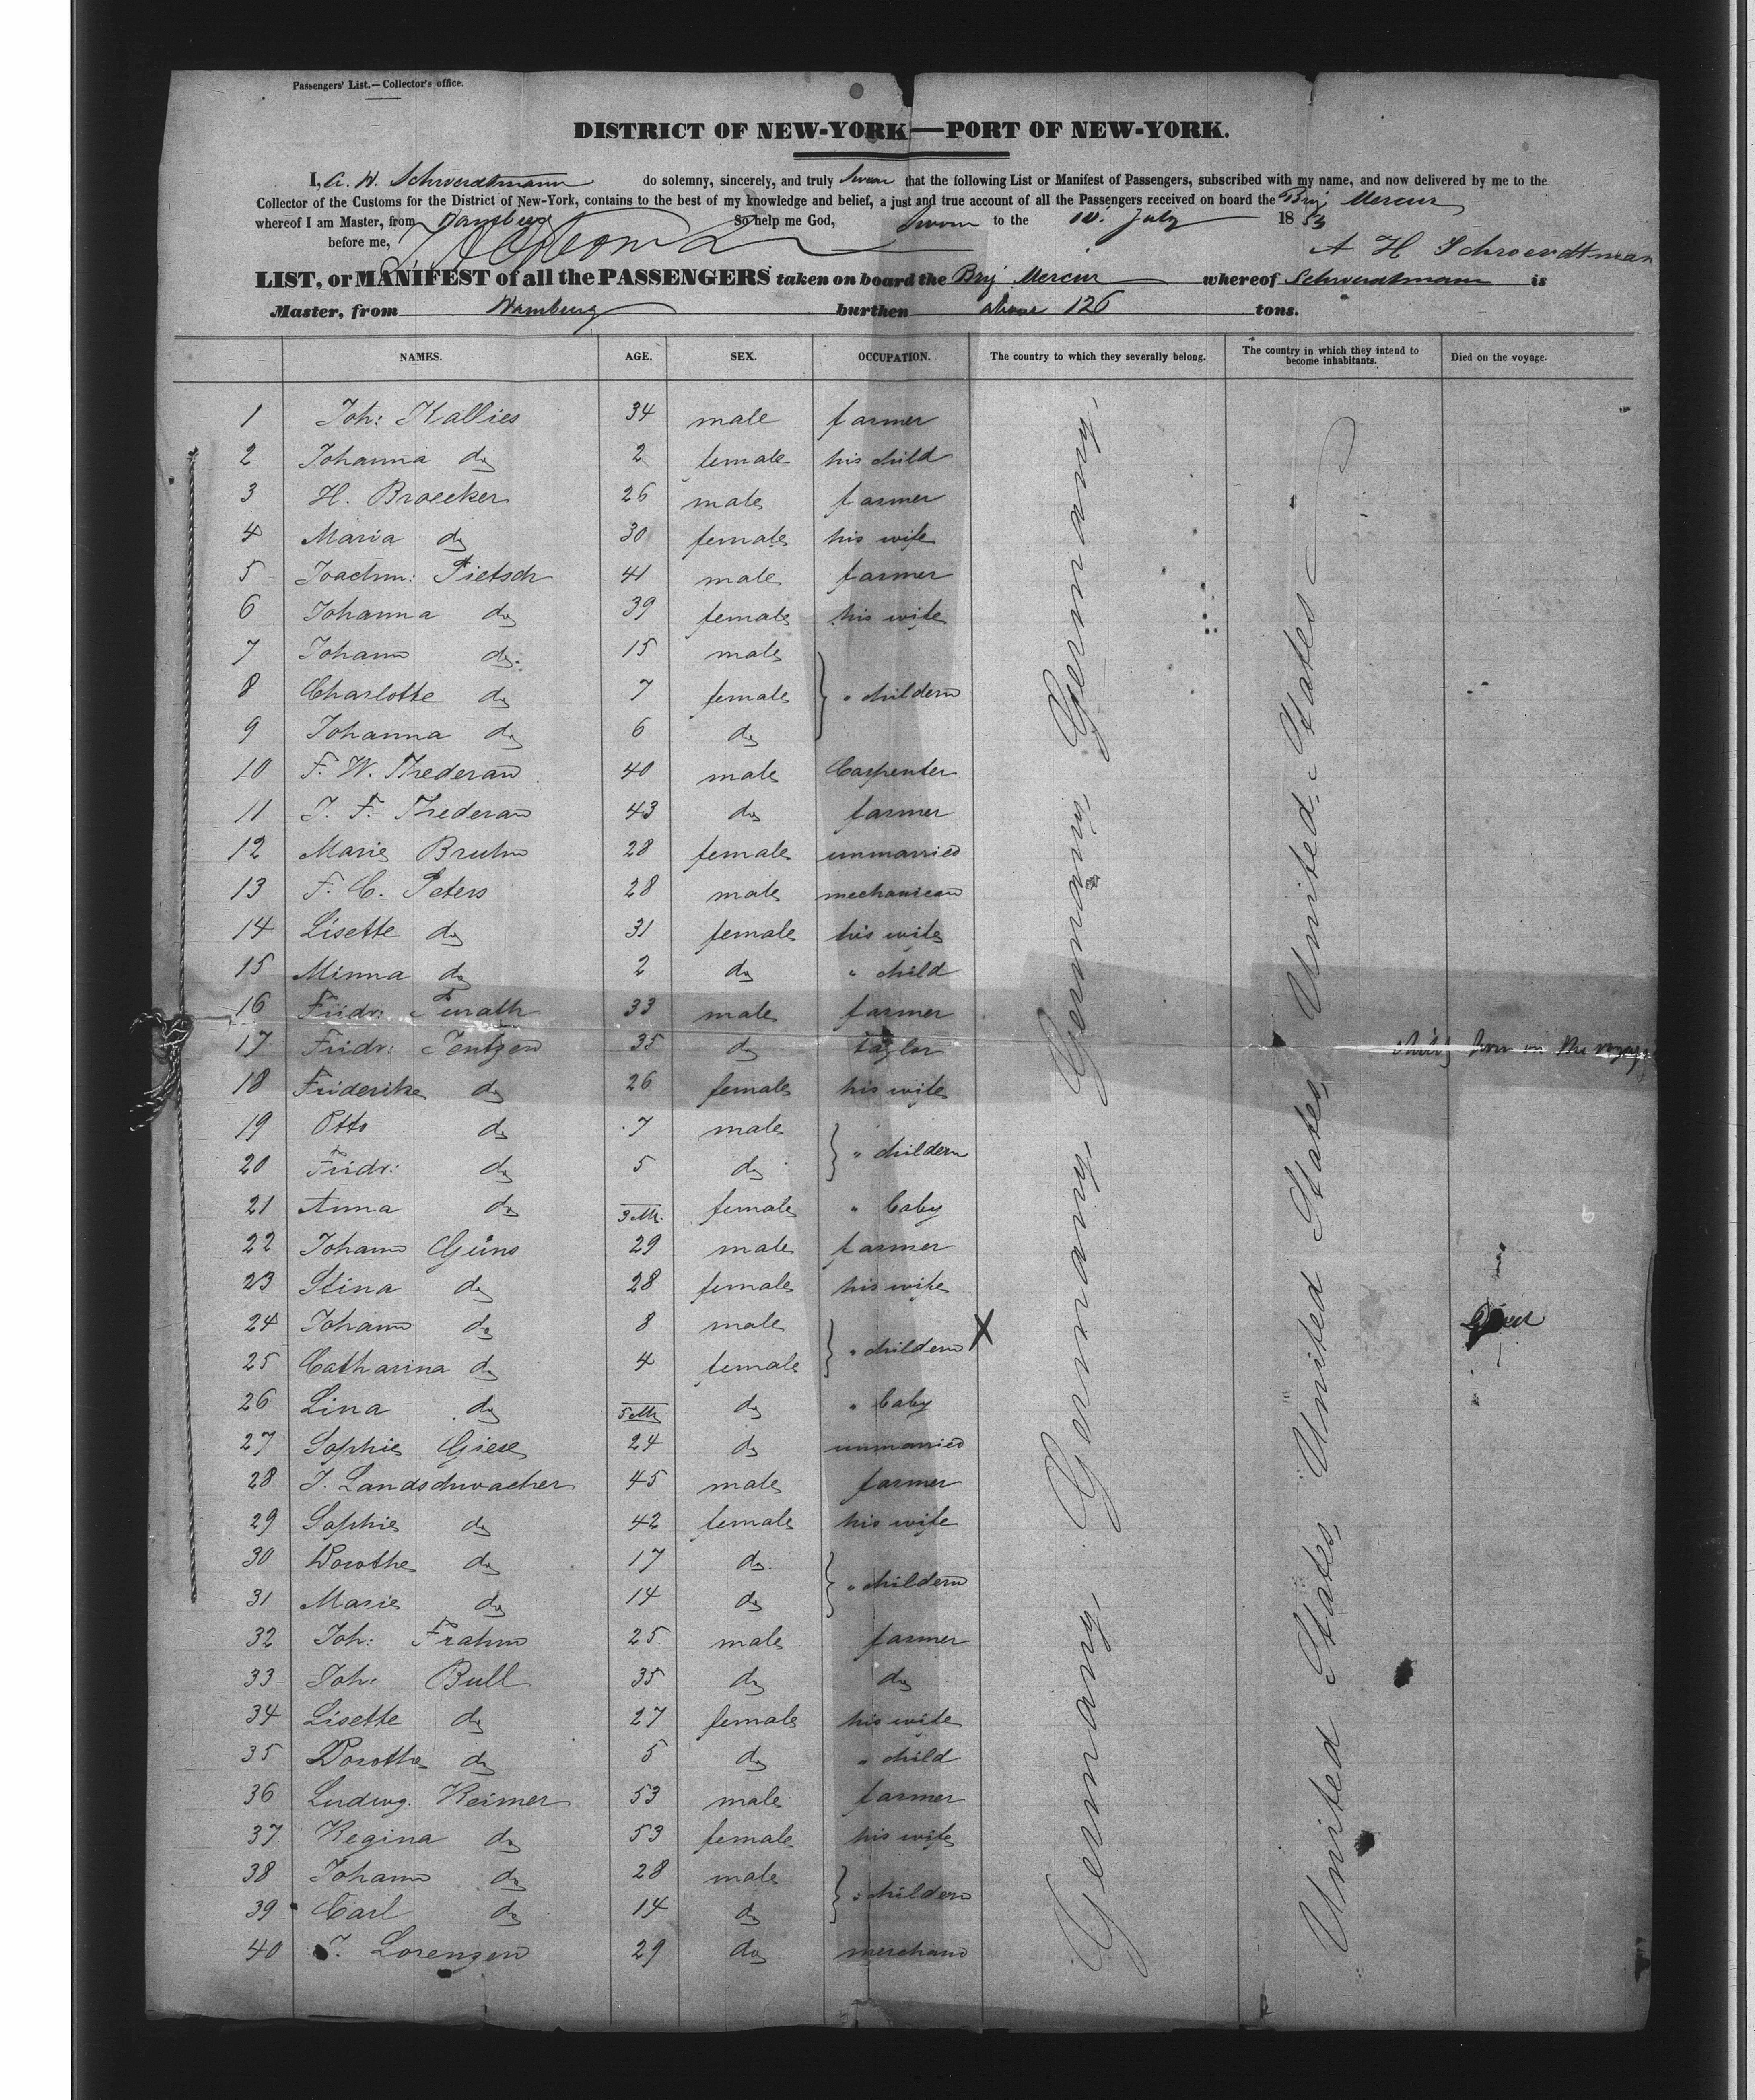 Passengers' List.—Collector's office.
DISTRICT OF NEW-YORK—PORT OF NEW-YORK.
I, A. H. Schwerdtmann do solemny, sincerely, and truly Swear that the following List or Manifest of Passengers, subscribed with my name, and now delivered by me to the
Collector of the Customs for the District of New-York, contains to the best of my knowledge and belief, a just and true account of all the Passengers received on board the Brig Mercur
whereof I am Master, from Hamburg So help me God, Sworn to the 10. July 1853
before me, A H Schwerdtmann
LIST, or MANIFEST of all the PASSENGERS taken on board the Brig Mercur whereof Schwerdtmann is
Master, from Hamburg burthen above 126 tons.
NAMES. AGE. SEX. OCCUPATION. The country to which they severally belong. The country in which they intend to become inhabitants. Died on the voyage.
1 Joh: Kallies 34 male farmer
2 Johanna do 2 female his child
3 H. Broecker 26 male farmer
4 Maria do 30 female his wife
5 Joachm: Pietsch 41 male farmer
6 Johanna do 39 female his wife
7 Johann do. 15 male
8 Charlotte do 7 female " childern
9 Johanna do 6 do
10 F. W. Thederan 40 male Carpenter
11 J. F. Thederan 43 do farmer
12 Marie Bruhn 28 female unmarried
13 F. C. Peters 28 male mechanican
14 Lisette do 31 female his wife
15 Minna do 2 do " child
16 Fridr: 33 male farmer
17 Fridr: Jentzen 35 do taylor child born on the voyage
18 Friderike do 26 female his wife
19 Otto do 7 male
" childern
20 Fridr: do 5 do
21 Anna do 3 M. female " baby
22 Johann Güns 29 male farmer
23 Stina do 28 female his wife
24 Johann do 8 male X died
" childern
25 Catharina do 4 female
26 Lina do 5 M do " baby
27 Sophie Giese 24 do unmarried
28 J. Landschwacher 45 male farmer
29 Sophie do 42 female his wife
30 Dorothe do 17 do.
" childern
31 Marie do 14 do
32 Joh: Frahm 25 male farmer
33 Joh: Bull 35 do do
34 Lisette do 27 female his wife
35 Dorothe do 5 do " child
36 Ludwg. Reimer 53 male farmer
37 Regina do 53 female his wife
38 Johann do 28 male
" childern
39 Carl do 14 do
40 J. Lorenzen 29 do merchand
Germany. Germany. Germany. Germany. Germany.
United States, United States, United States, United States